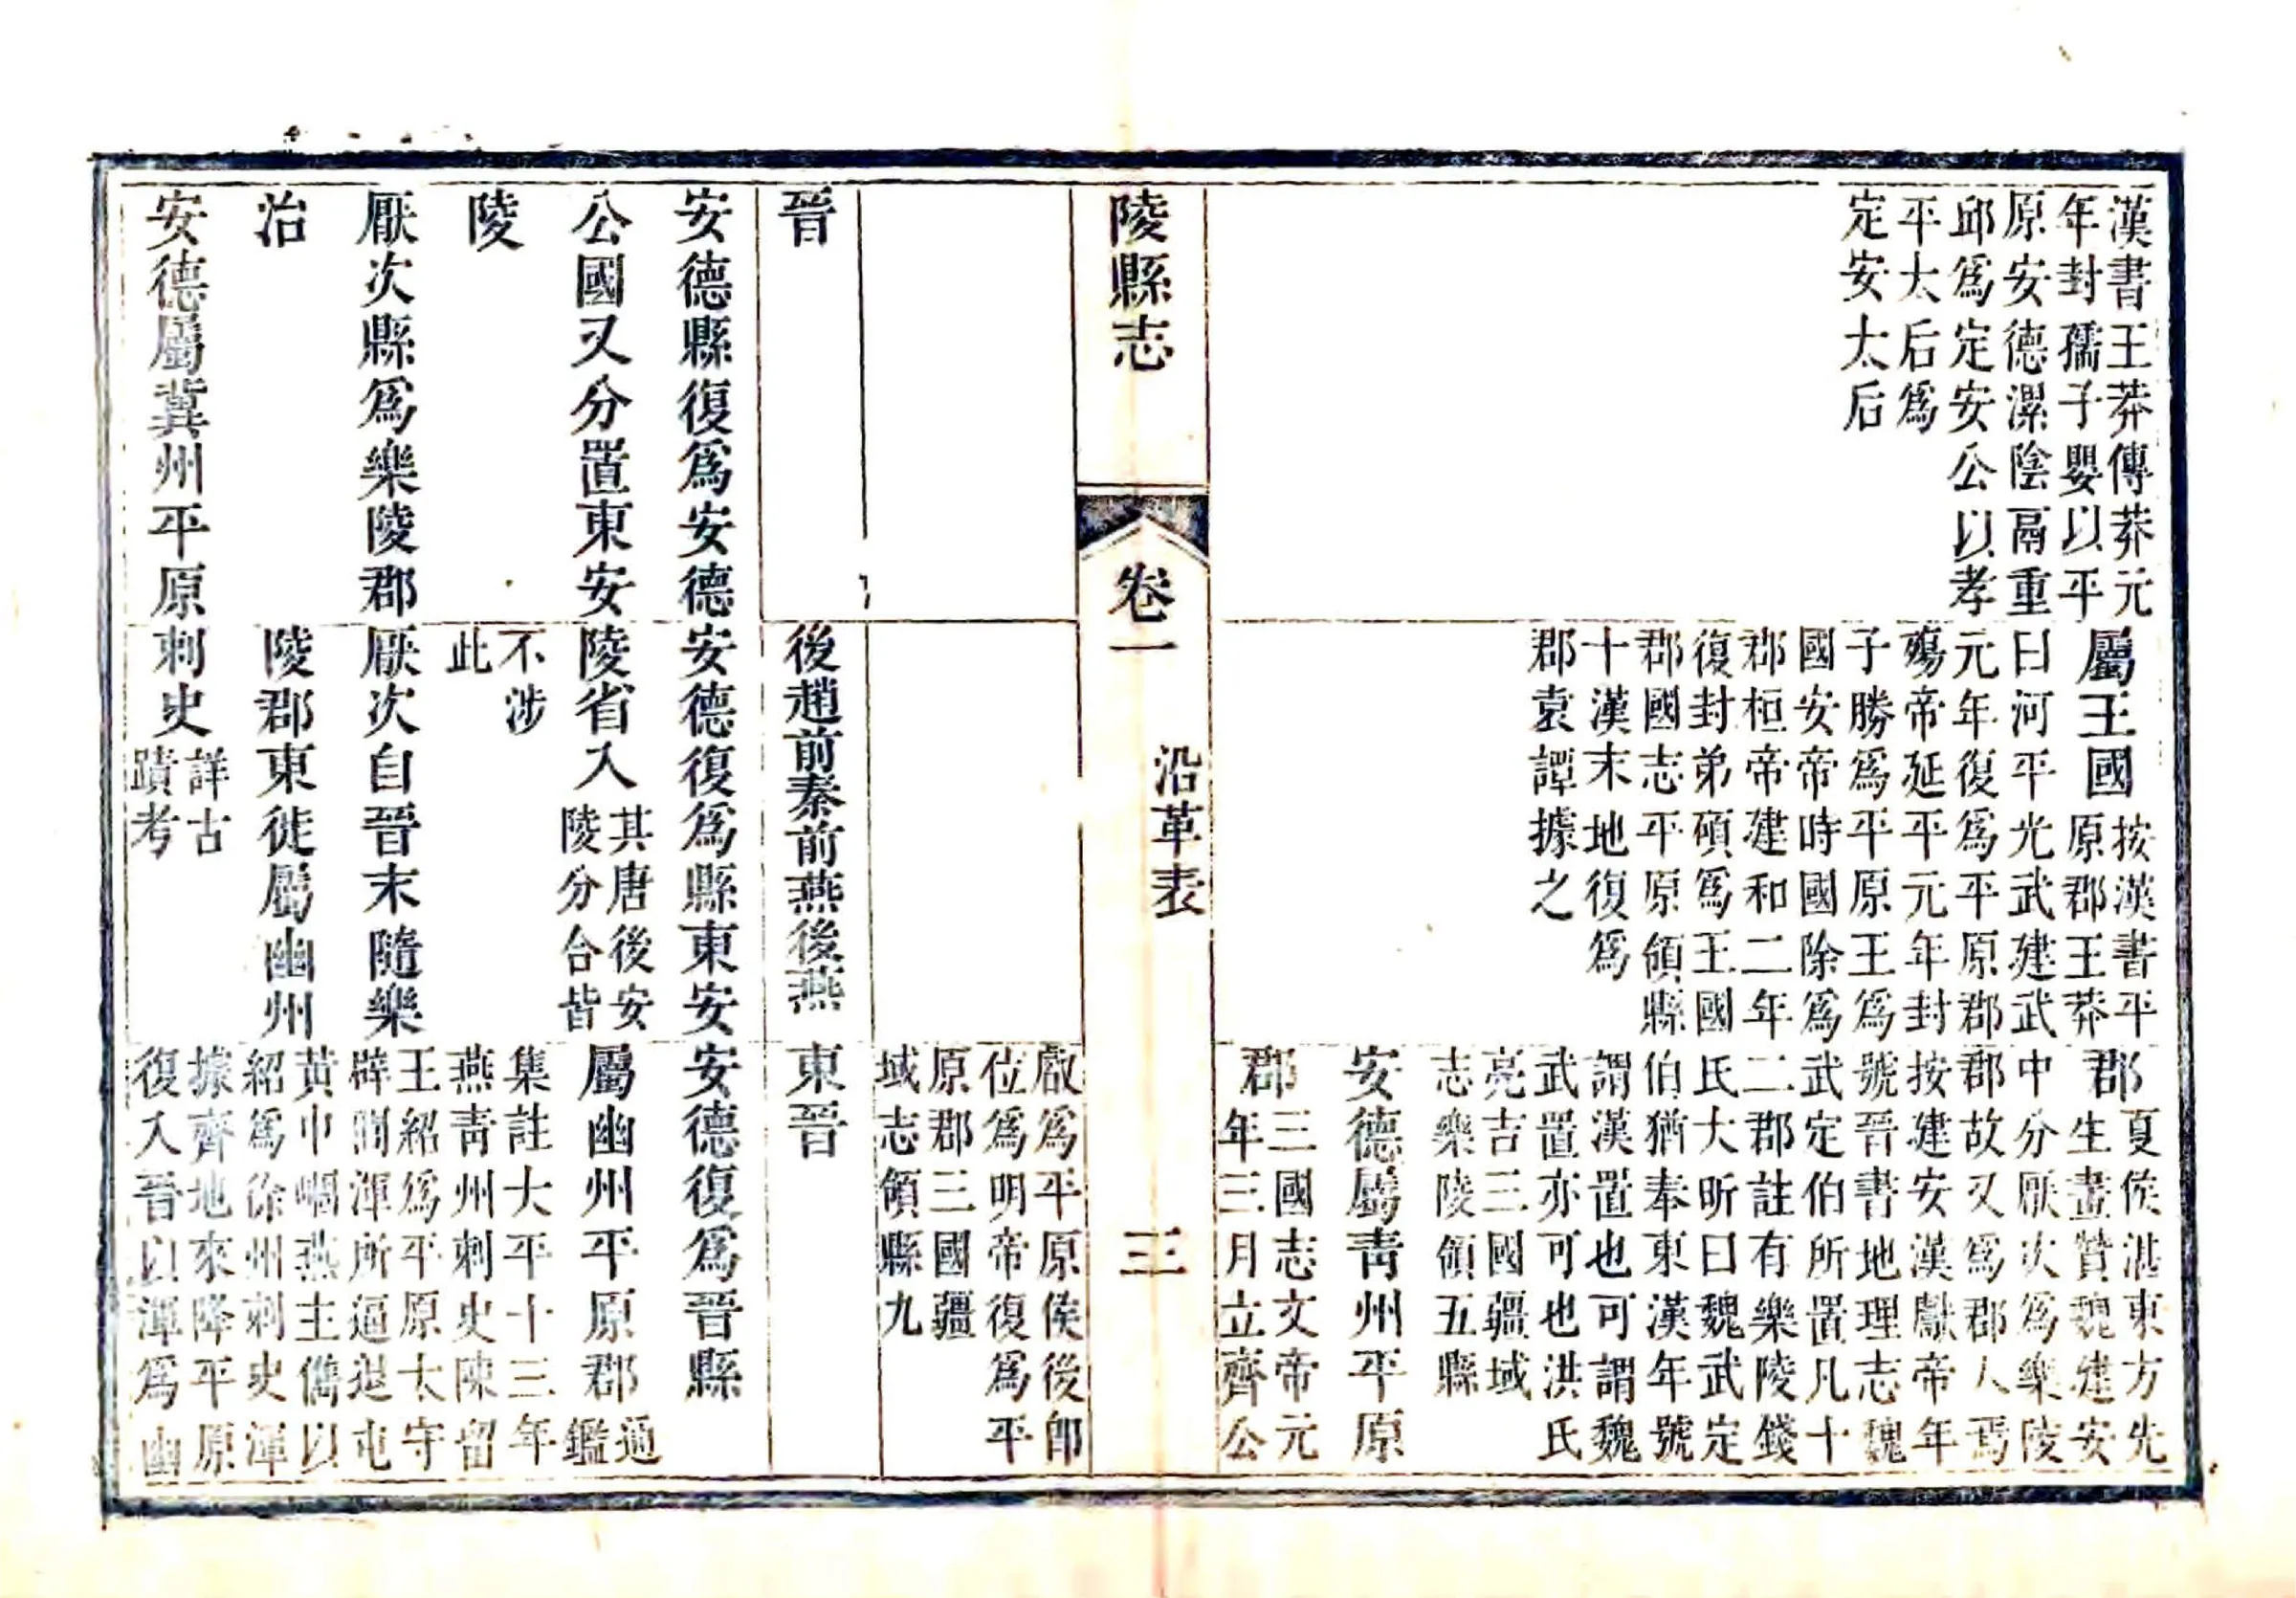 漢書王莽傳莽元
年封孺子嬰以平
原安德漯陰鬲重
邱爲定安公以孝
平太后爲
定安太后
屬王國
按漢書平
原郡王莽
曰河平光武建武
元年復爲平原郡
殤帝延平元年封
子勝爲平原王爲
國安帝時國除爲
郡桓帝建和二年
復封弟碩爲王國
郡國志平原領縣
十漢末地復爲
郡袁譚據之
郡
夏侯湛東方先
生畫贊魏建安
中分厭次爲樂陵
郡故又爲郡人焉
按建安漢獻帝年
號晉書地理志魏
武定伯所置凡十
二郡註有樂陵錢
氏大昕曰魏武定
伯猶奉東漢年號
謂漢置也可謂魏
武置亦可也洪氏
亮吉三國疆域
志樂陵領五縣
安德屬青州平原
郡
三國志文帝元
年三月立齊公
陵縣志
卷一
沿革表
三
叡爲平原侯後卽
位爲明帝復爲平
原郡三國疆
域志領縣九
晉
後趙前秦前燕後燕
東晉
安德縣復爲安德
公國又分置東安
陵
厭次縣爲樂陵郡
治
安德屬冀州平原
安德復爲縣東安
陵省入
其唐後安
陵分合皆
不涉
此
厭次自晉末隨樂
陵郡東徙屬幽州
刺史
詳古
蹟考
安德復爲晉縣
屬幽州平原郡
通
鑑
集註大平十三年
燕青州刺史陳留
王紹爲平原太守
辟閭渾所逼退屯
黃巾崓燕主儁以
紹爲徐州刺史渾
據齊地來降平原
復入晉以渾爲幽